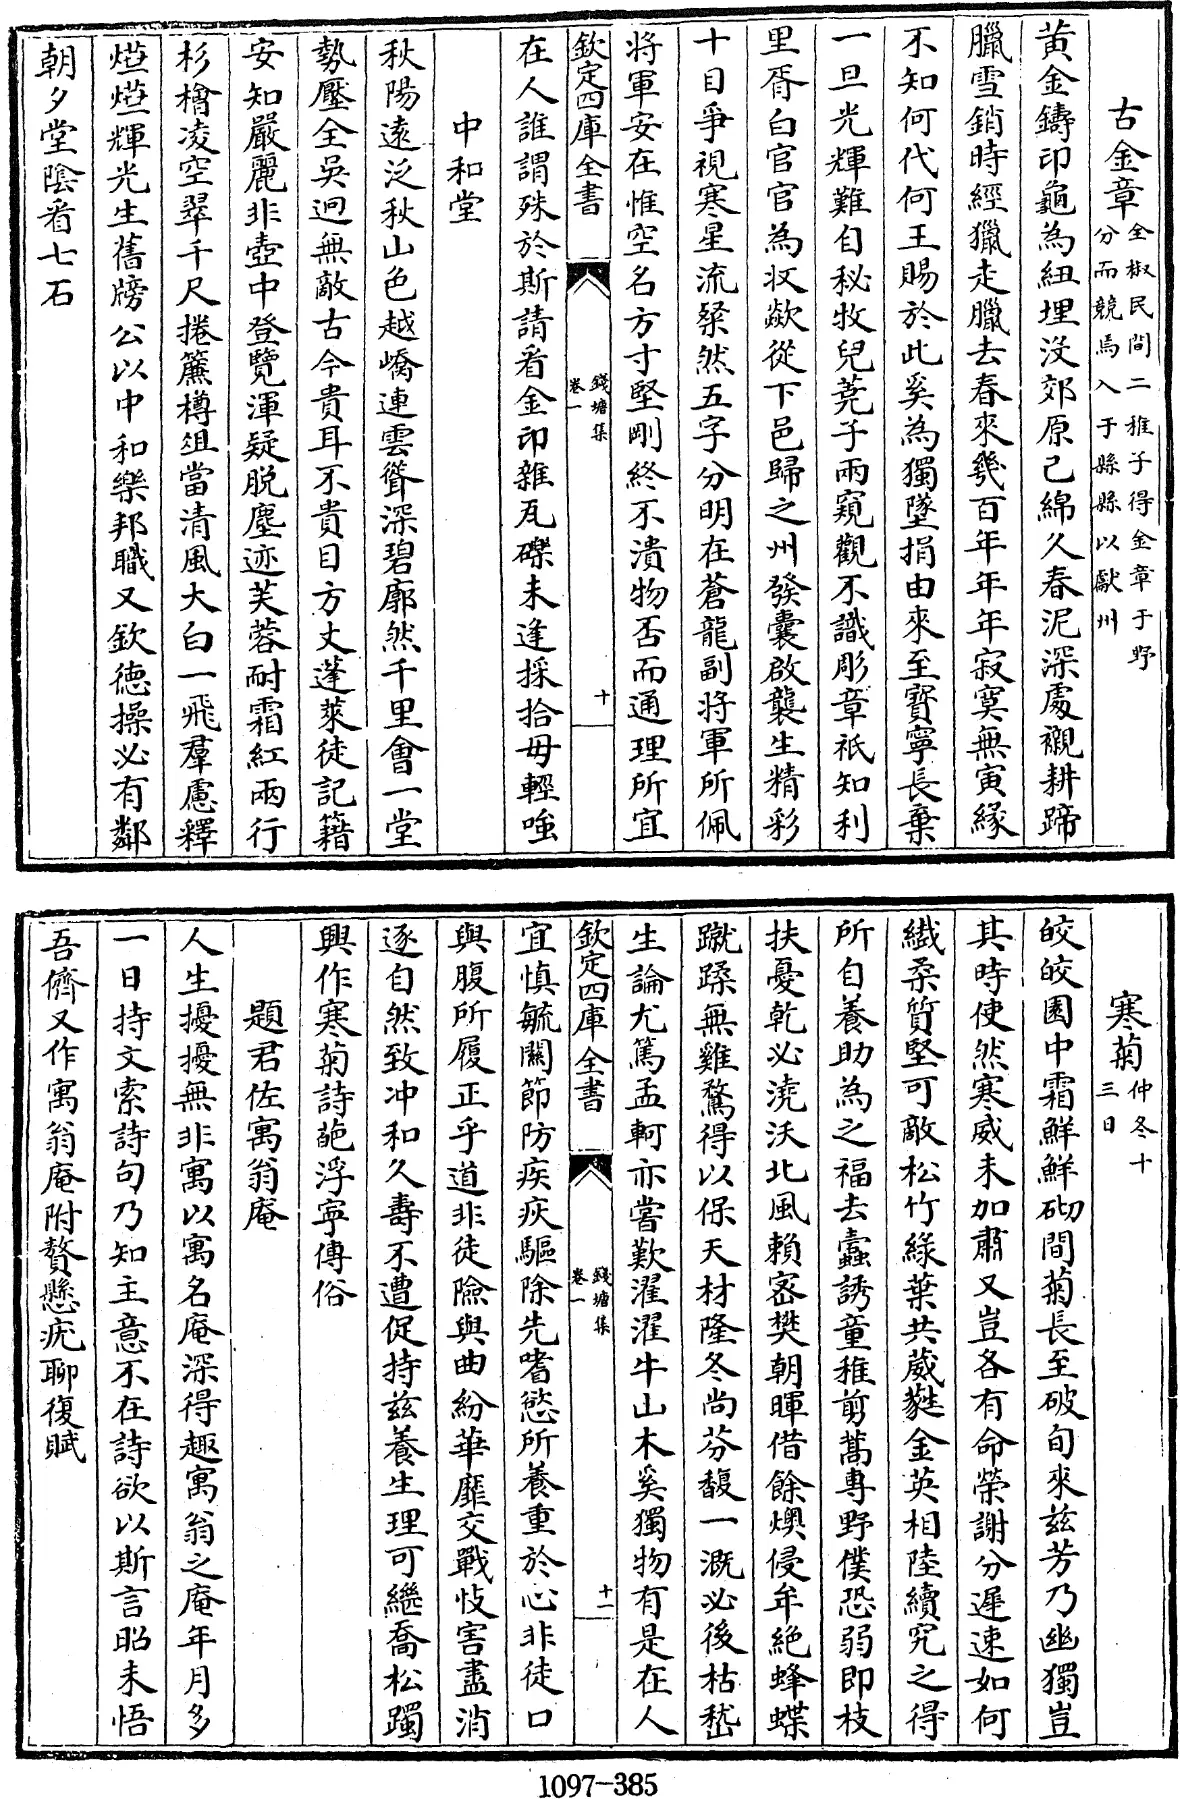 古金章全椒民間二稚子得金章于野
分而競馬入于縣縣以獻州
黃金鑄印龜為紐埋没郊原已綿久春泥深處襯耕蹄
臘雪銷時經獵走臘去春來幾百年年年寂寞無寅緣
不知何代何王賜於此奚為獨墜捐由來至寳寧長棄
一旦光輝難自秘牧兒蕘子兩窺觀不識彫章祇知利
里胥白官官為收歘從下邑歸之州發囊啟襲生精彩
十目爭視寒星流粲然五字分明在蒼龍副將軍所佩
將軍安在惟空名方寸堅剛終不潰物否而通理所宜
欽定四庫全書
錢塘集
卷一
十
在人誰謂殊於斯請看金印雜瓦礫未逢採拾毋輕嗤
中和堂
秋陽遠泛秋山色越嶠連雲聳深碧廓然千里會一堂
勢壓全吳迥無敵古今貴耳不貴目方丈蓬萊徒記籍
安知嚴麗非壺中登覽渾疑脱塵迹芙蓉耐霜紅兩行
杉檜凌空翠千尺捲簾樽俎當清風大白一飛羣慮釋
㷼㷼輝光生舊牓公以中和樂邦職又欽德操必有鄰
朝夕堂陰看七石
寒菊仲冬十
三日
皎皎園中霜鮮鮮砌間菊長至破旬來兹芳乃幽獨豈
其時使然寒威未加肅又豈各有命榮謝分遲速如何
纎柔質堅可敵松竹緑葉共葳蕤金英相陸續究之得
所自養助為之福去蠧誘童稚剪蒿專野僕恐弱即枝
扶憂乾必澆沃北風賴密樊朝暉借餘燠侵年絶蜂蝶
蹴蹂無雞鶩得以保天材隆冬尚芬馥一溉必後枯嵇
生論尤篤孟軻亦嘗歎濯濯牛山木奚獨物有是在人
欽定四庫全書
錢塘集
卷一
十一
宜慎毓關節防疾疢驅除先嗜慾所養重於心非徒口
與腹所履正乎道非徒險與曲紛華靡交戰忮害盡消
逐自然致冲和久壽不遭促持兹養生理可繼喬松躅
興作寒菊詩葩浮寧傳俗
題君佐寓翁庵
人生擾擾無非寓以寓名庵深得趣寓翁之庵年月多
一日持文索詩句乃知主意不在詩欲以斯言昭未悟
吾儕又作寓翁庵附贅懸疣聊復賦
1097-385